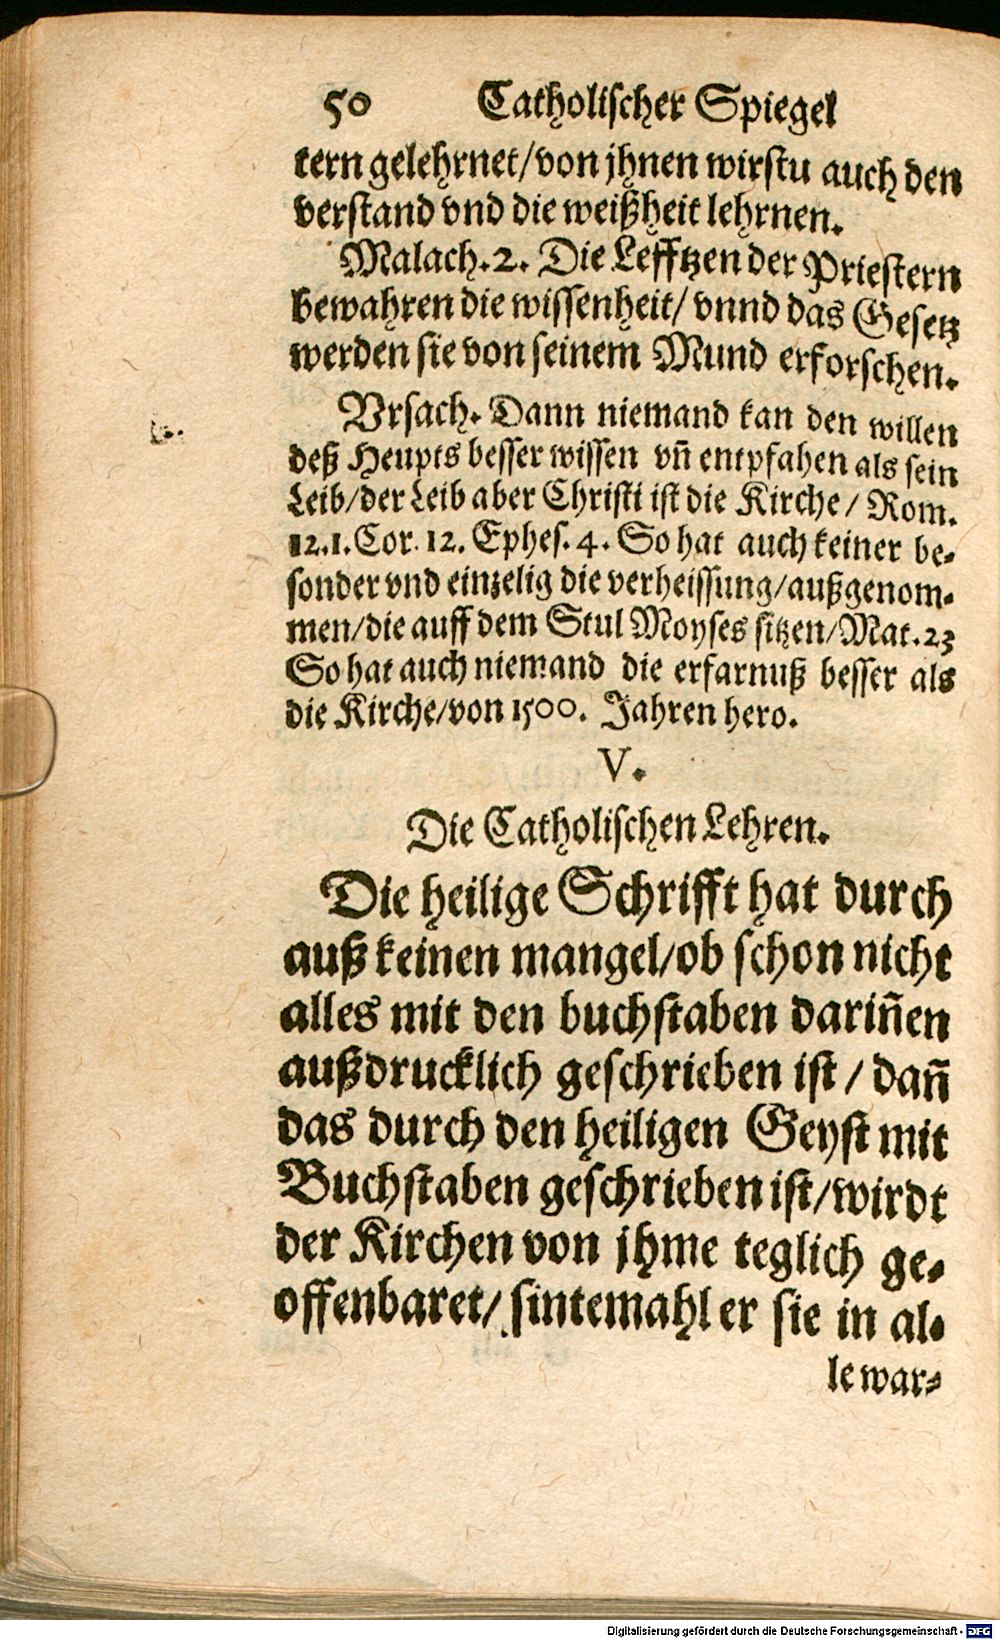 50 Catholischer Spiegel
tern gelehrnet/von jhnen wirstu auch den
verstand vnd die weißheit lehrnen.
Malach. 2. Die Lefftzen der Priestern
bewahren die wissenheit/ vnnd das Gesetz
werden sie von seinem Mund erforschen.
Vrsach. Dann niemand kan den willen
deß Heupts besser wissen vñ entpfahen als sein
Leib/der Leib aber Christi ist die Kirche/ Rom.
12.1.Cor. 12. Ephes. 4. So hat auch keiner be-
sonder vnd eintzelig die verheissung/außgenom-
men/die auff dem Stul Moyses sitzen/Mat. 23
So hat auch niemand die erfarnuß besser als
die Kirche/von 1500. Jahren hero.
V.
Die Catholischen Lehren.
Die heilige Schrifft hat durch
auß keinen mangel/ob schon nicht
alles mit den buchstaben dariñen
außdrucklich geschrieben ist/ dañ
das durch den heiligen Geyst mit
Buchstaben geschrieben ist/wirdt
der Kirchen von jhme teglich ge-
offenbaret/ sintemahl er sie in al-
le war-
Digitalisierung gefördert durch die Deutsche Forschungsgemeinschaft - DFG